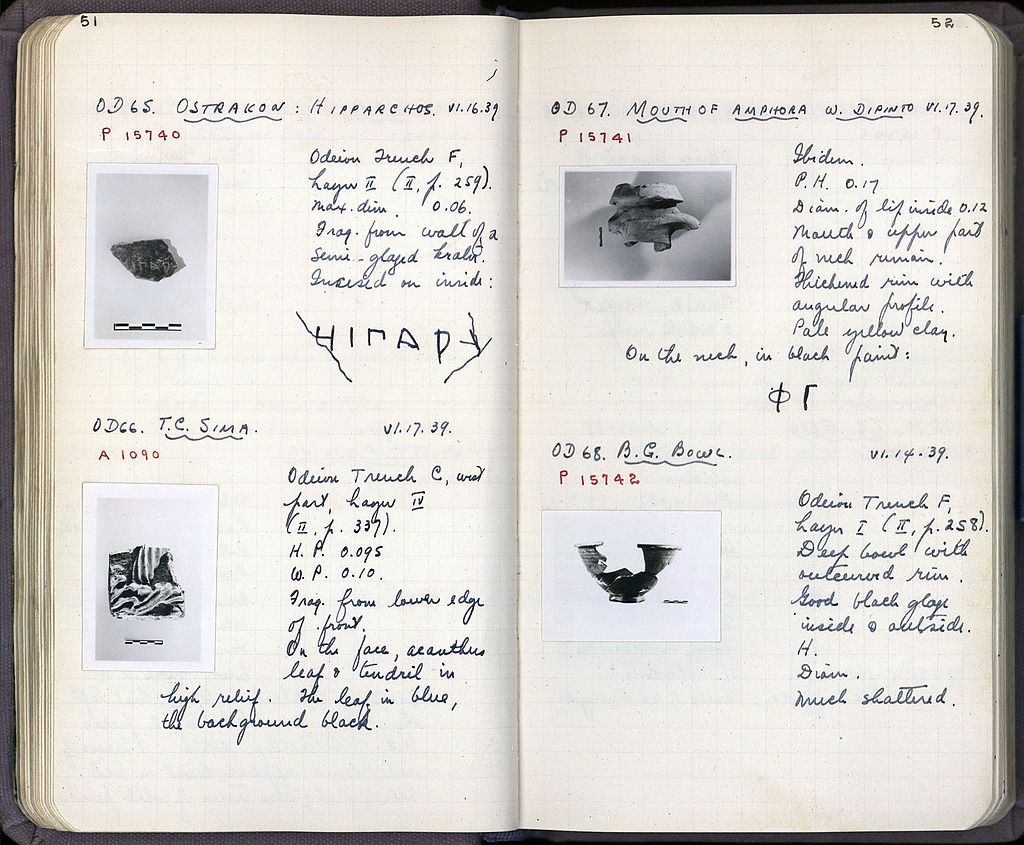 51
OD 65. OSTRAKON : HIPPARCHOS. VI.16.39
P 15740
Odeion Trench F,
Layer II (II, p. 259).
Max. dim. 0.06.
Frag. from wall of a
semi-glazed krater.
Incised on inside:
ΗΙΠΑΡ
OD66. T.C. SIMA. VI.17.39.
A 1090
Odeion Trench C, west
part, Layer IV
(II, p. 337).
H.P. 0.095
W.P. 0.10.
Frag. from lower edge
of front.
On the face, acanthus
leaf & tendril in
high relief. The leaf in blue,
the background black.
52
OD 67. MOUTH OF AMPHORA W. DIPINTO VI.17.39.
P 15741
Ibidem.
P.H. 0.17
Diam. of lip inside 0.12
Mouth & upper part
of neck remain.
Thickened rim with
angular profile.
Pale yellow clay.
On the neck, in black paint:
Φ Γ
OD 68. B.G. BOWL. VI.14.39.
P 15742
Odeion Trench F,
Layer I (II, p. 258).
Deep bowl with
outcurved rim.
Good black glaze
inside & outside.
H.
Diam.
Much shattered.